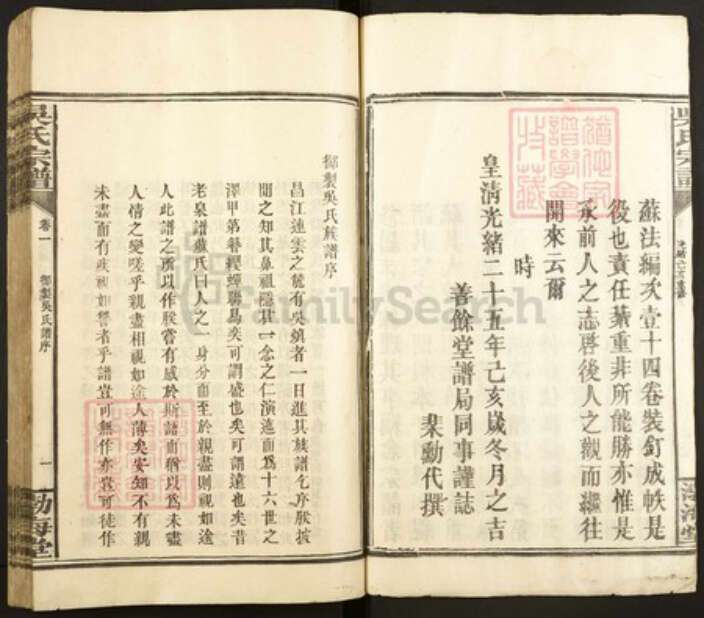 吳氏宗譜
蘇法編次壹十四卷裝釘成帙是
役也責任綦重非所能勝亦惟是
承前人之志啓後人之觀而繼往
開來云爾
時
皇淸光緒二十五年己亥歲冬月之吉
善餘堂譜局同事謹誌
棐勳代撰
渤海堂
御製吳氏族譜序
昌江連雲之麓有吳縝者一日進其族譜乞序朕披
閱之知其鼻祖隱其一念之仁演遠而爲十六世之
澤甲第簪纓蟬聯烏奕可謂盛也矣可謂遠也矣昔
老泉譜蘇氏曰人之一身分而至於親盡則視如途
人此譜之所以作朕嘗有感於斯語而猶以爲未盡
人情之變嗟乎親盡相視如途人薄矣安知不有親
未盡而有疾視如讐者乎譜豈可無作亦豈可徒作
吳氏宗譜
卷一
御製吳氏譜序
一
渤海堂
FamilySearch